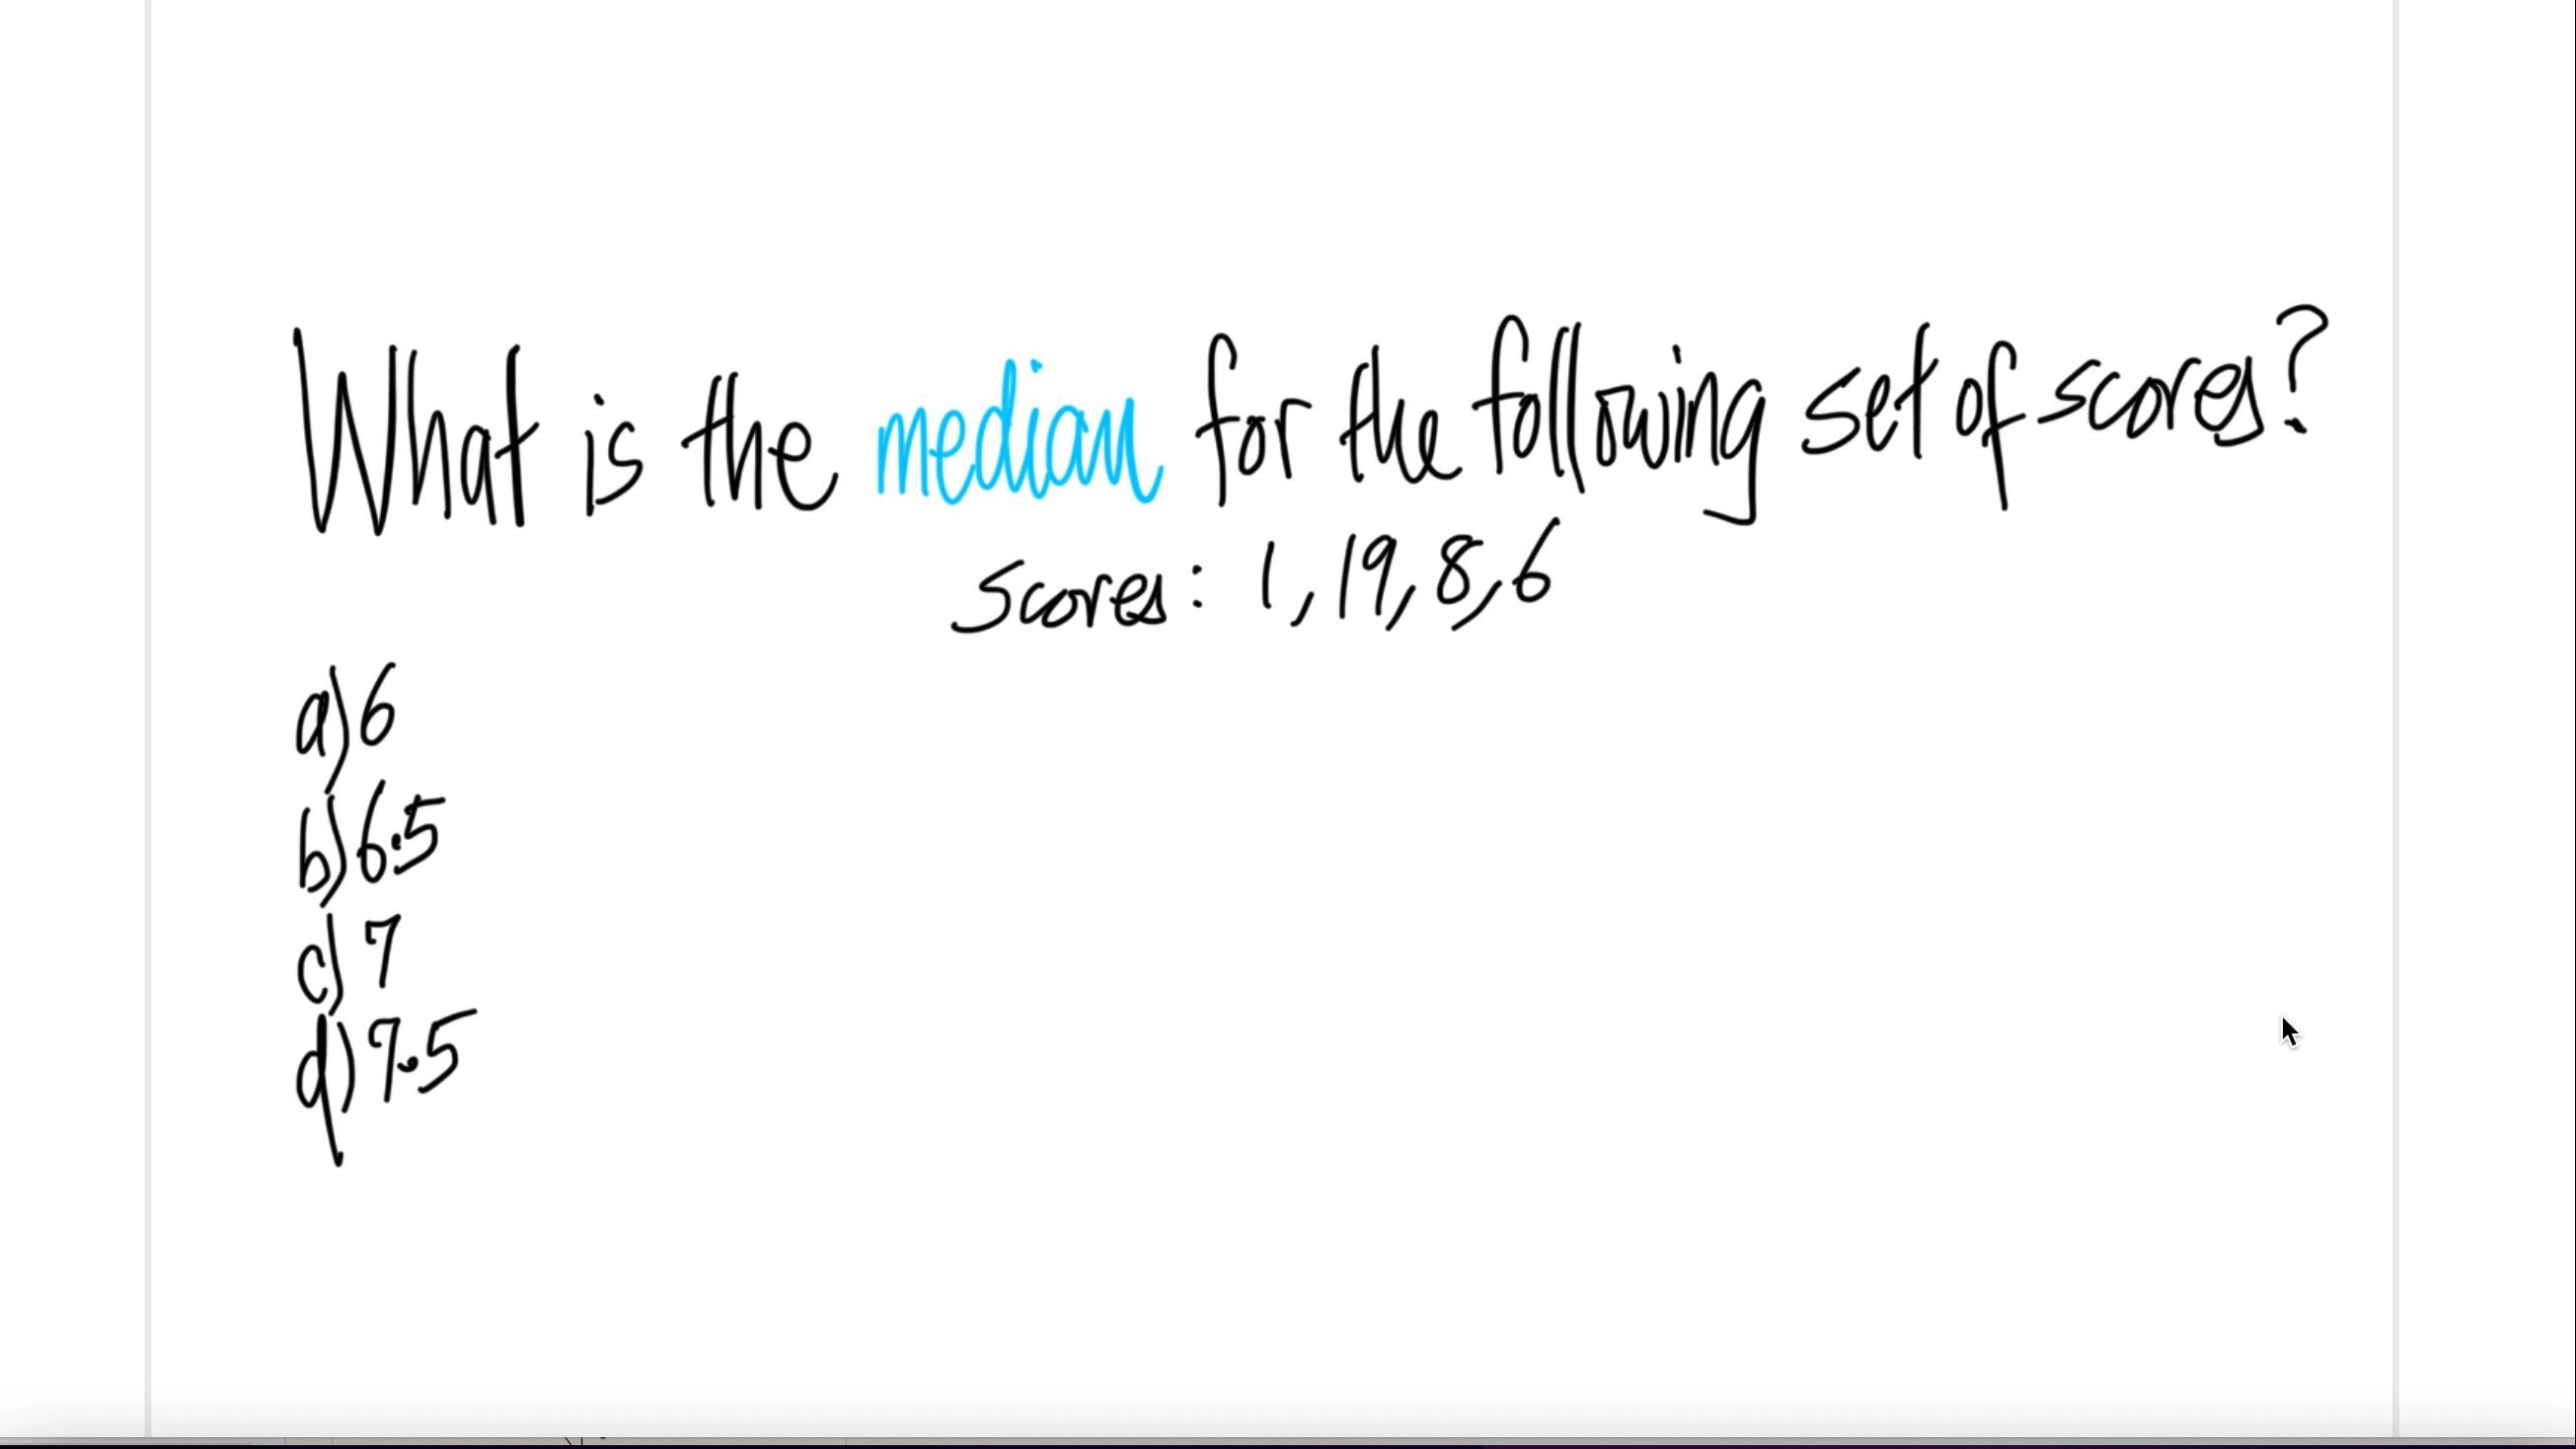 What is the median for the following set of scores?
scores: 1, 19, 8, 6
a) 6
b) 6.5
c) 7
d) 7.5